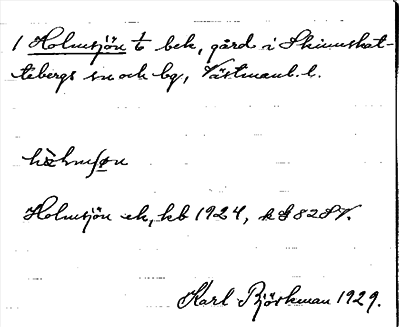 1 Holmsjön t bek, gård i Skinnskat-
tebergs sn och bg, Västmanl. l.
hòlmʃøn
Holmsjön ek, kb 1924,
Karl Björkman 1929.